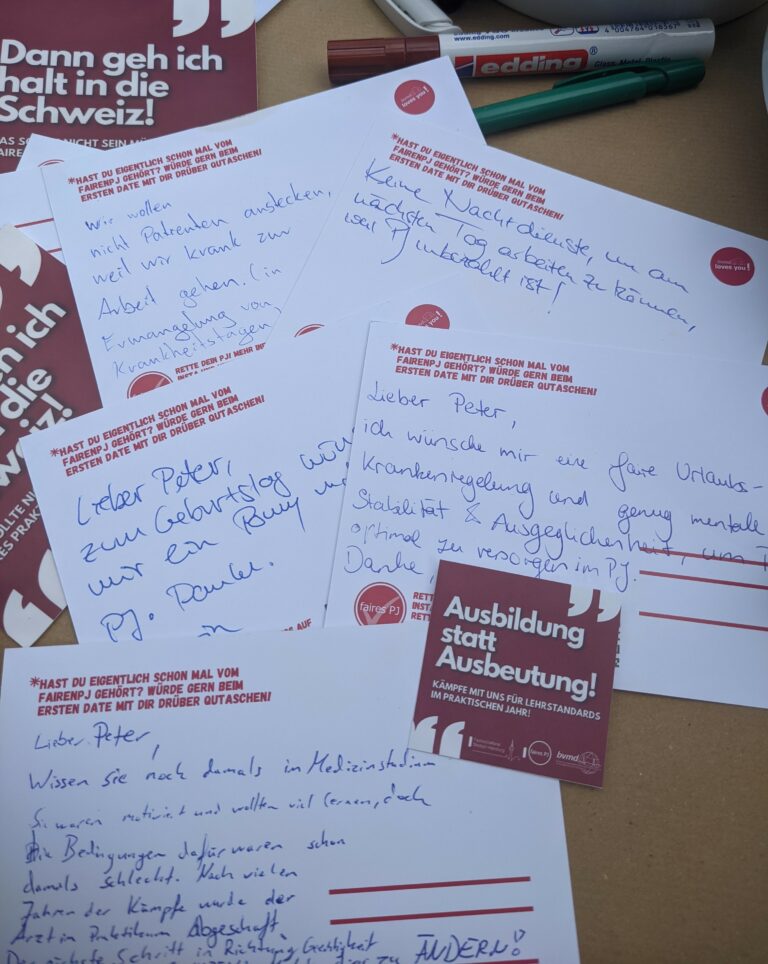 Dann geh ich
halt in die
Schweiz!
edding
www.edding.com
Glass, Metal, Plastic
bvmd
loves you!
*HAST DU EIGENTLICH SCHON MAL VOM
FAIRENPJ GEHÖRT? WÜRDE GERN BEIM
ERSTEN DATE MIT DIR DRÜBER QUTASCHEN!
Wir wollen
nicht Patienten anstecken,
weil wir krank zur
Arbeit gehen. (in
Ermangelung von
Krankheitstagen)
RETTE DEIN PJ MEHR INF
*HAST DU EIGENTLICH SCHON MAL VOM
FAIRENPJ GEHÖRT? WÜRDE GERN BEIM
ERSTEN DATE MIT DIR DRÜBER QUTASCHEN!
Keine Nachtdienste, um am
nächsten Tag arbeiten zu können,
weil PJ unbezahlt ist!
bvmd
loves you!
bvmd
loves you!
n ich
die
*HAST DU EIGENTLICH SCHON MAL VOM
FAIRENPJ GEHÖRT? WÜRDE GERN BEIM
ERSTEN DATE MIT DIR DRÜBER QUTASCHEN!
Lieber Peter,
zum Geburtstag
mir ein
PJ. Danke.
*HAST DU EIGENTLICH SCHON MAL VOM
FAIRENPJ GEHÖRT? WÜRDE GERN BEIM
ERSTEN DATE MIT DIR DRÜBER QUTASCHEN!
Lieber Peter,
ich wünsche mir eine faire Urlaubs-
Krankenregelung und genug mentale
Stabilität & Ausgeglichenheit, um
optimal zu versorgen im PJ.
Danke,
faires PJ
RETT
INSTA
RETT
Ausbildung
statt
Ausbeutung!
KÄMPFE MIT UNS FÜR LEHRSTANDARDS
IM PRAKTISCHEN JAHR!
faires PJ
bvmd
*HAST DU EIGENTLICH SCHON MAL VOM
FAIRENPJ GEHÖRT? WÜRDE GERN BEIM
ERSTEN DATE MIT DIR DRÜBER QUTASCHEN!
Lieber Peter,
Wissen Sie noch damals im Medizinstudium
Sie waren motiviert und wollten viel lernen, doch
Die Bedingungen dafür waren schon
damals schlecht. Nach vielen
Jahren der Kämpfe wurde der
Arzt im Praktikum Abgeschaft.
Der nächste Schritt in Richtung
zu ÄNDERN!